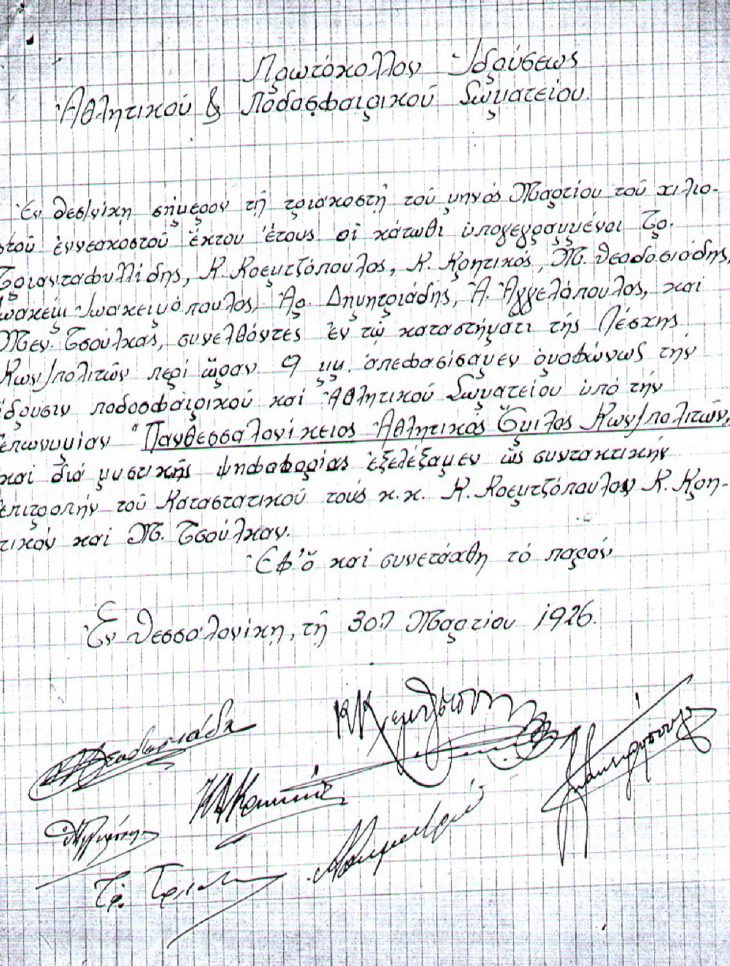 Πρωτόκολλον Ιδρύσεως
Ἀθλητικοῦ & Ποδοσφαιρικοῦ Σωματείου.
Ἐν Θεσ/νίκῃ σήμερον τῇ τριακοστῇ τοῦ μηνὸς Μαρτίου τοῦ χιλιο-
στοῦ ἐννεακοστοῦ ἕκτου ἔτους οἱ κάτωθι ὑπογεγραμμένοι Τρ.
Τριανταφυλλίδης, Κ. Κοεμτζόπουλος, Κ. Κρητικός, Μ. Θεοδοσιάδης,
Ἰωακείμ Ἰωακειμόπουλος, Ἀρ. Δημητριάδης, Ἀ. Ἀγγελόπουλος, καί
Μεν. Τσούλκας, συνελθόντες ἐν τῷ καταστήματι τῆς Λέσχης
Κων/πολιτῶν περί ὥραν 9 μμ. ἀπεφασίσαμεν ὁμοφώνως τήν
ἵδρυσιν ποδοσφαιρικοῦ καί Ἀθλητικοῦ Σωματείου ὑπό τήν
ἐπωνυμίαν "Πανθεσσαλονίκειος Ἀθλητικός Ὅμιλος Κων/πολιτῶν,,
καί διά μυστικῆς ψηφαφορίας ἐξελέξαμεν ὡς συντακτικήν
ἐπιτροπήν τοῦ Καταστατικοῦ τούς κ.κ. Κ. Κοεμτζόπουλον Κ. Κρη-
τικόν καί Μ. Τσούλκαν.
Ἐφ'ᾧ καί συνετάχθη τό παρόν
Ἐν Θεσσαλονίκῃ, τῇ 30ῇ Μαρτίου 1926.
Θεοδωσιάδη
Τρ. Τριαν